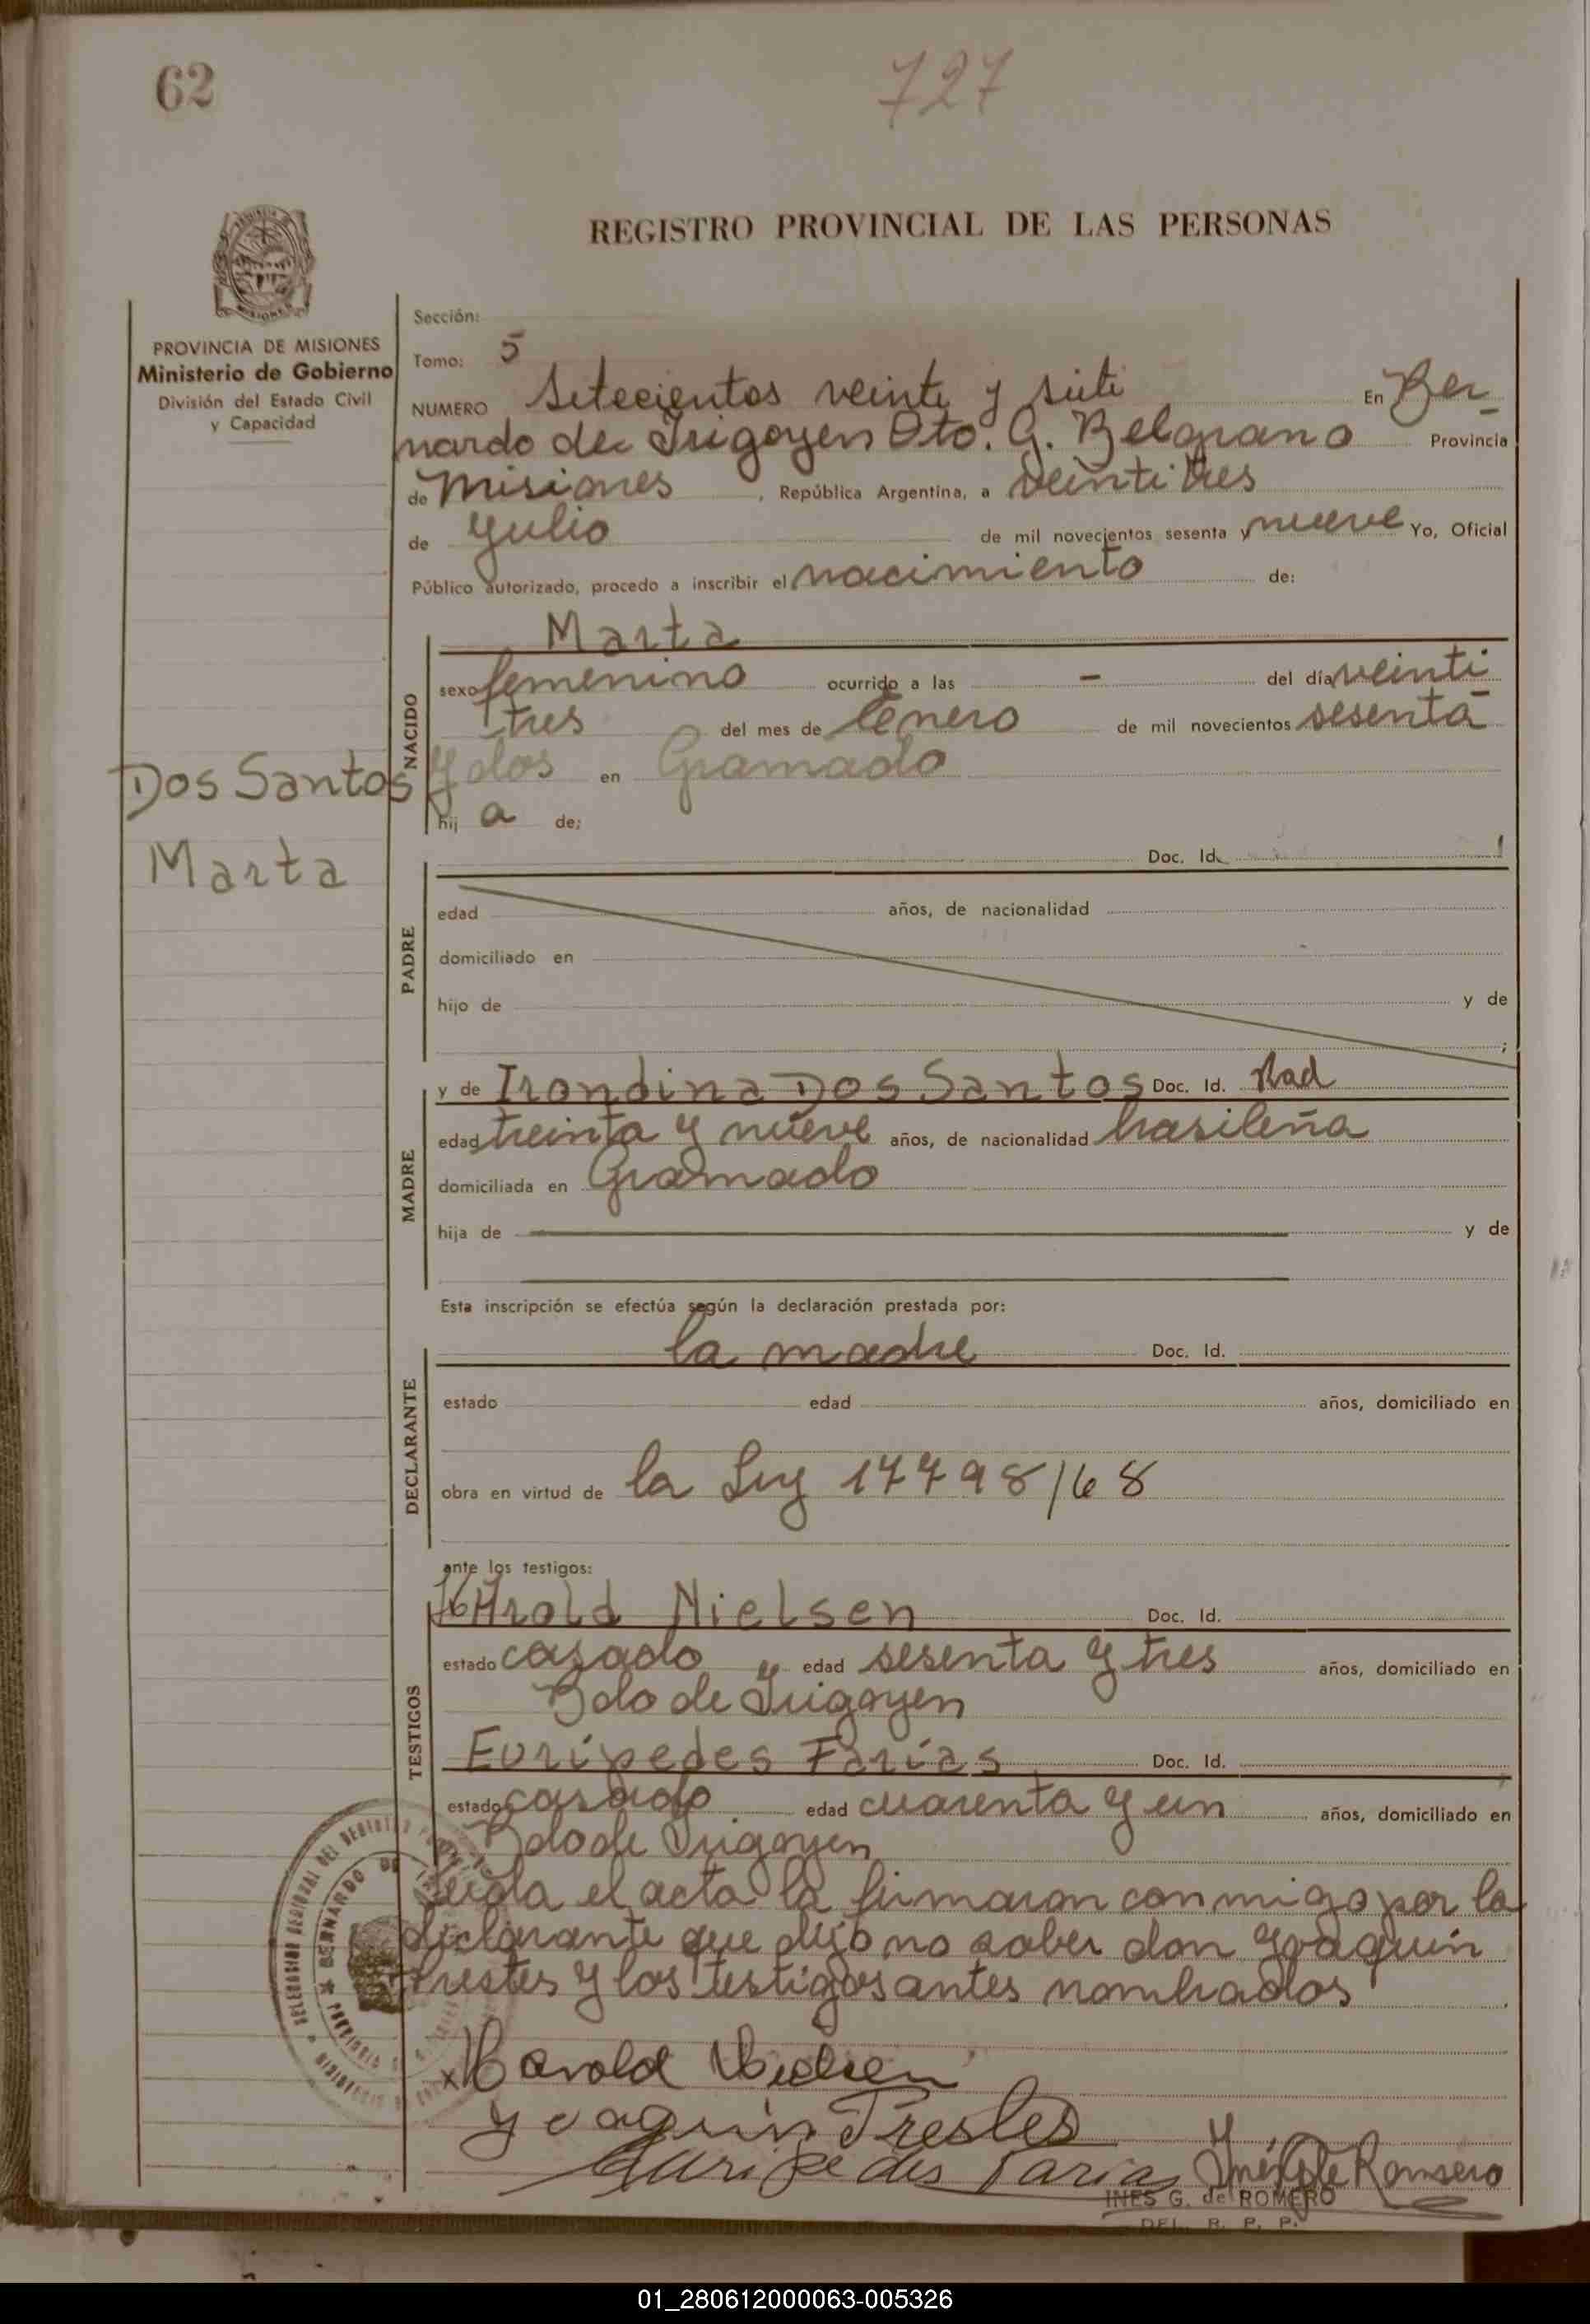 62
727
REGISTRO PROVINCIAL DE LAS PERSONAS
PROVINCIA DE MISIONES
Ministerio de Gobierno
División del Estado Civil
y Capacidad
Dos Santos
Marta
Sección:
Tomo: 5
NUMERO Setecientos veinte y siete En Ber-
nardo de Irigoyen Dto. G. Belgrano Provincia
de Misiones, República Argentina, a veinti tres
de Julio de mil novecientos sesenta y nueve Yo, Oficial
Público autorizado, procedo a inscribir el nacimiento de:
NACIDO
Marta
sexo femenino ocurrido a las - del día veinti
tres del mes de Enero de mil novecientos sesenta
y dos en Gramado
hij a de;
PADRE
Doc. Id.
edad años, de nacionalidad
domiciliado en
hijo de y de
;
MADRE
y de Irondina Dos Santos Doc. Id.
edad treinta y nueve años, de nacionalidad brasileña
domiciliada en Gramado
hija de y de
Esta inscripción se efectúa según la declaración prestada por:
DECLARANTE
la madre Doc. Id.
estado edad años, domiciliado en
obra en virtud de la Ley 17798/68
ante los testigos:
TESTIGOS
Harold Nielsen Doc. Id.
estado casado y edad sesenta y tres años, domiciliado en
Bdo de Irigoyen
Eurípedes Farías Doc. Id.
estado casado edad cuarenta y un años, domiciliado en
Bdo de Irigoyen
Leida el acta la firmaron conmigo por la
declarante que dijo no saber don Joaquin
Prestes y los testigos antes nombrados
x Harold Nielsen
Joaquin Prestes
Euripedes Farias Inés G de Romero
INES G. de ROMERO
DEL. R. P. P.
01_280612000063-005326